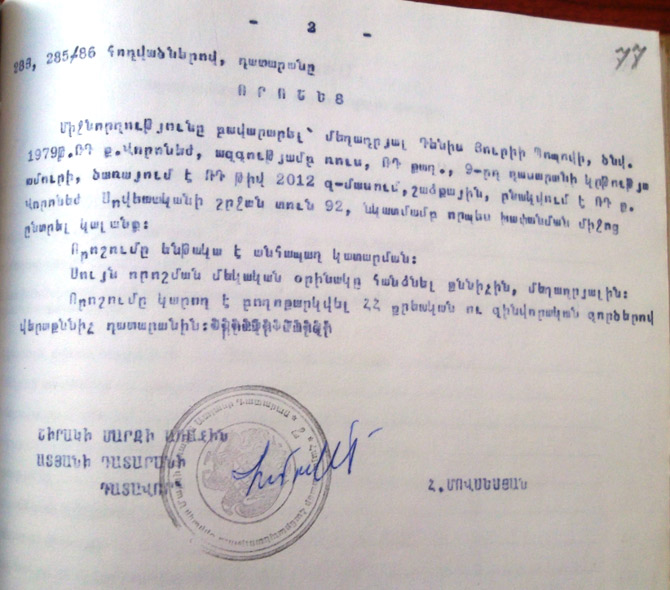 - 2 -
77
283, 285/86 հոդվածներով, դատարանը
ՈՐՈՇԵՑ
Միջնորդությունը բավարարել՝ մեղադրյալ Դենիս Յուրիի Պոպովի, ծնվ.
1979թ.ՌԴ ք.Վորոնեժ, ազգությամբ ռուս, ՌԴ քաղ., 9-րդ դասարանի կրթությա
ամուրի, ծառայում է ՌԴ թիվ 2012 զ-մասում,շարքային, բնակվում է ՌԴ ք.
Վորոնեժ Սովետական շրջան տուն 92, նկատմամբ որպես խափանման միջոց
ընտրել կալանք:
Որոշումը ենթակա է անհապաղ կատարման:
Սույն որոշման մեկական օրինակը հանձնել քննիչին, մեղադրյալին:
Որոշումը կարող է բողոքարկվել ՀՀ քրեական ու զինվորական գործերով
վերաքննիչ դատարանին:
ՇԻՐԱԿԻ ՄԱՐԶԻ ԱՌԱՋԻՆ
ԱՏՅԱՆԻ ԴԱՏԱՐԱՆԻ
ԴԱՏԱՎՈՐ
Հ.ՄՈՎՍԵՍՅԱՆ